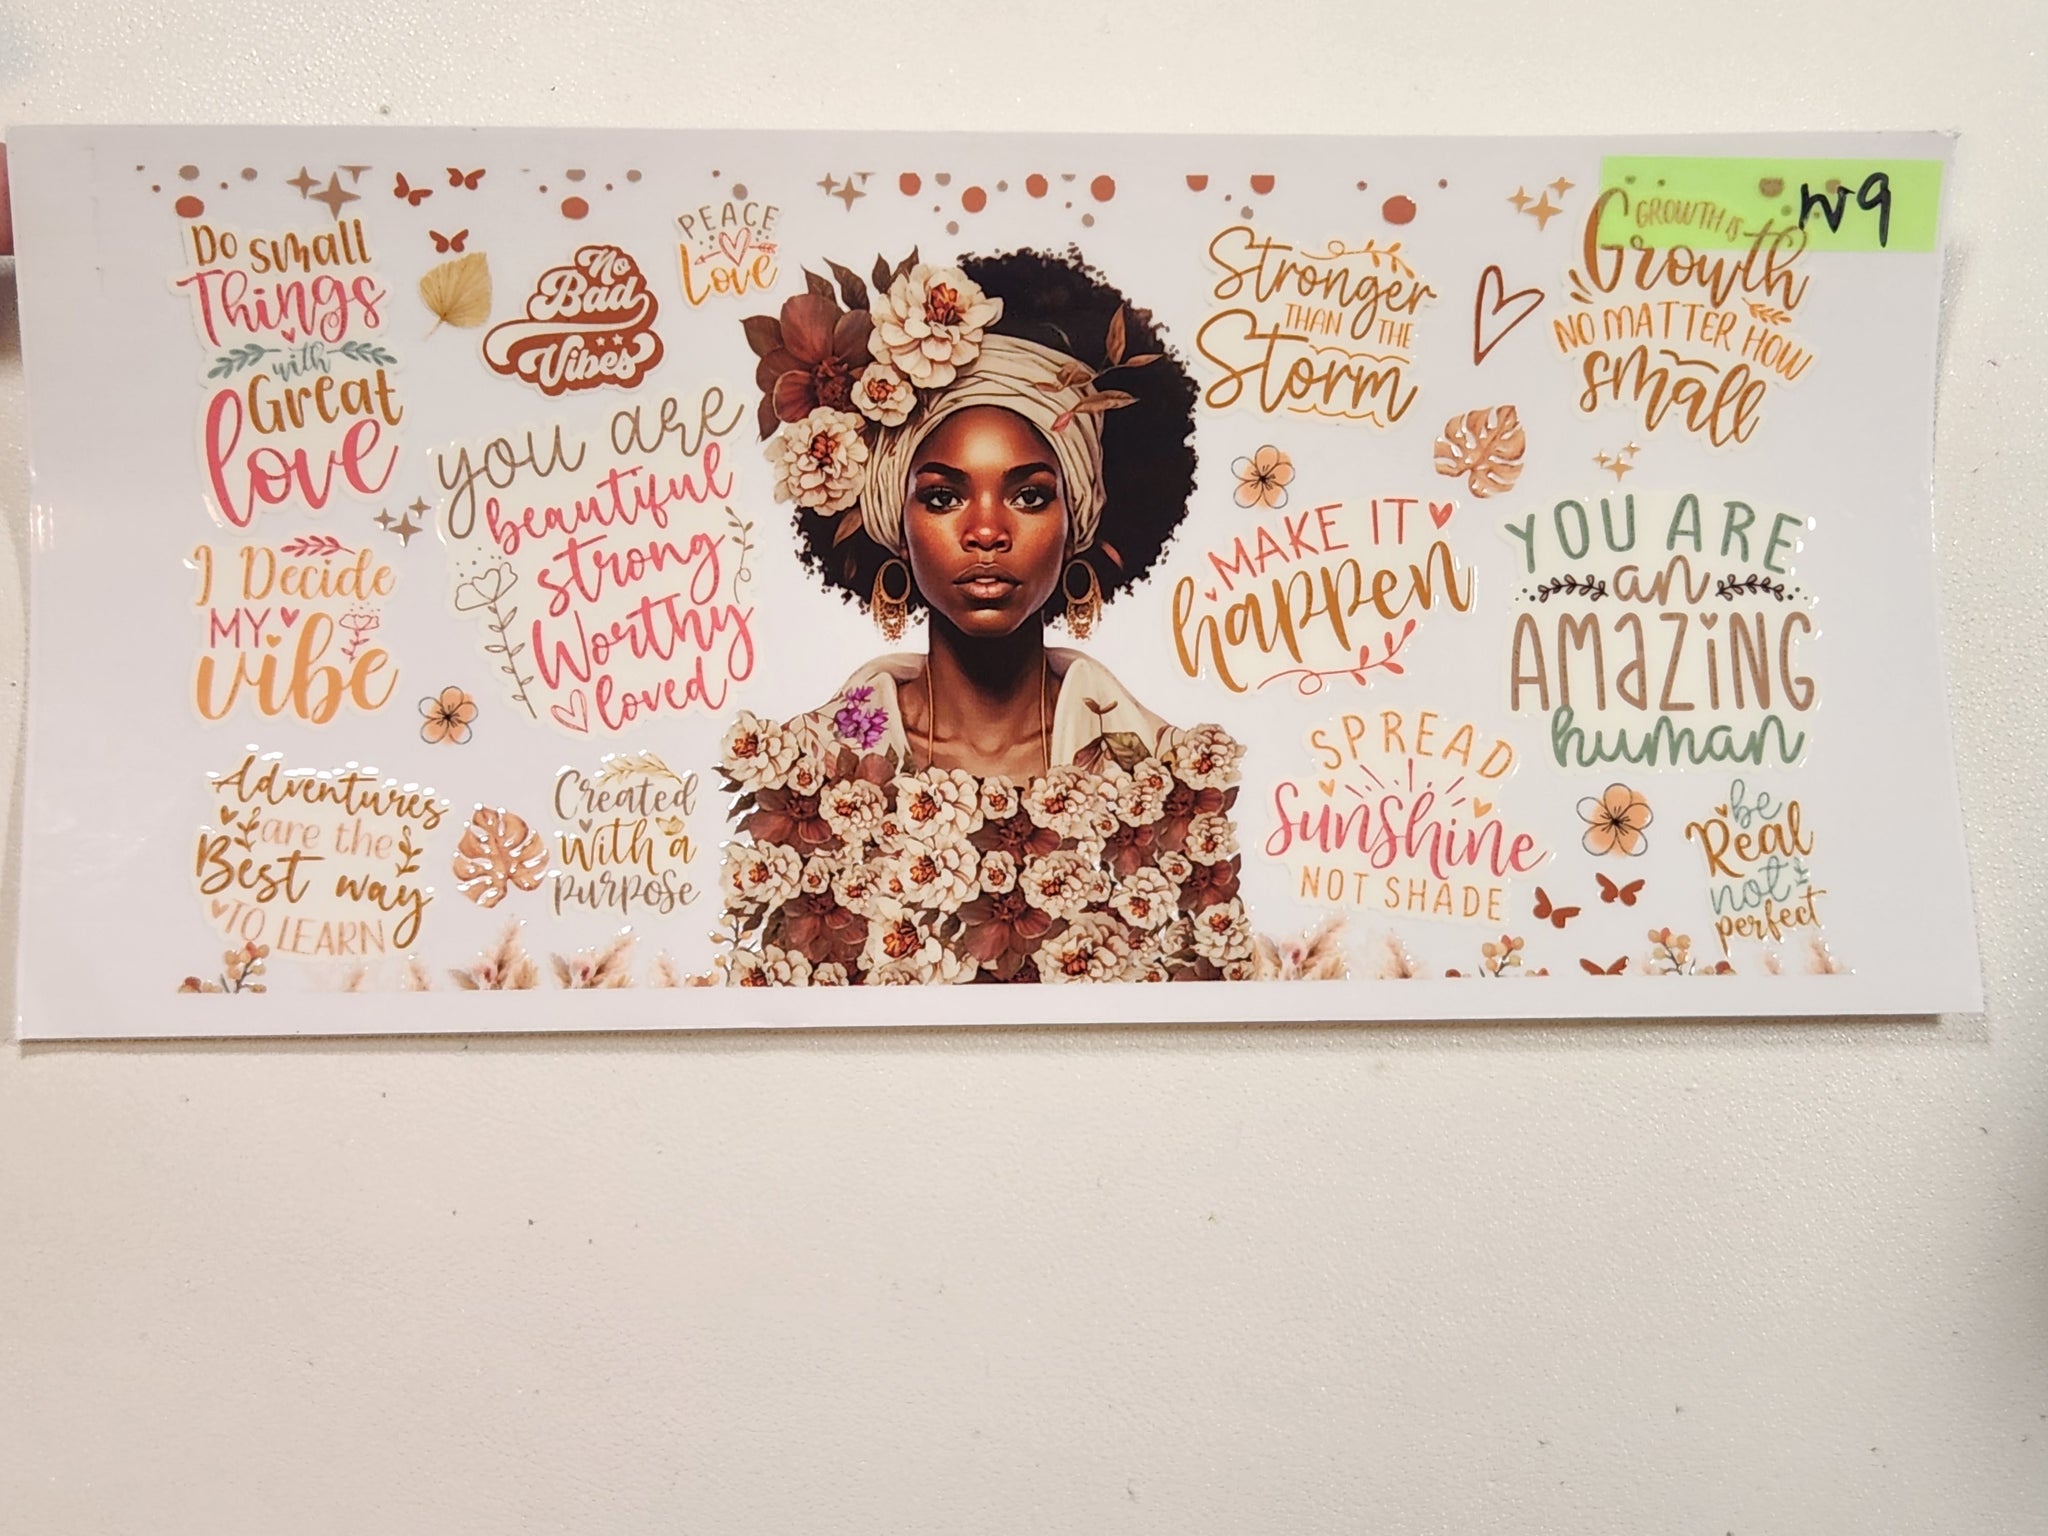 Do small
Things
with
Great
love
No
Bad
Vibes
PEACE
Love
you are
beautiful
strong
Worthy
loved
I Decide
MY
vibe
Adventures
are the
Best way
TO LEARN
Created
with a
purpose
Stronger
THAN THE
Storm
GROWTH IS
Growth
NO MATTER HOW
small
MAKE IT
happen
YOU ARE
an
AMAZING
human
SPREAD
Sunshine
NOT SHADE
be
Real
not
perfect